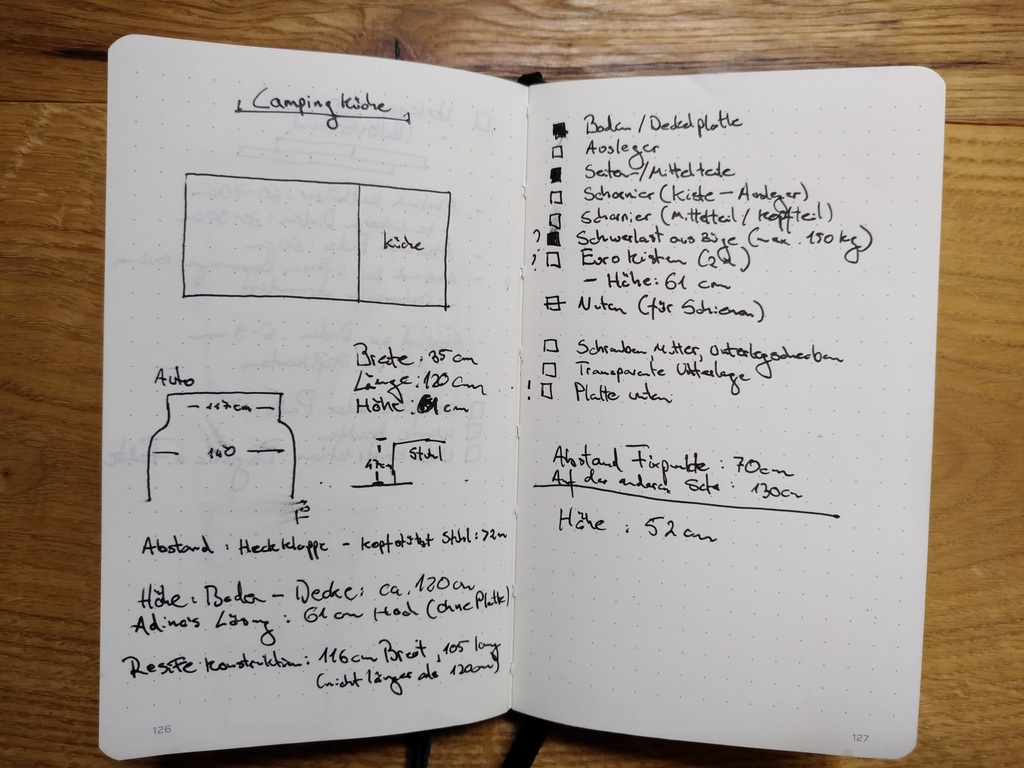 Camping Küche
Küche
Breite : 35 cm
Länge : 120 cm
Höhe : 61 cm
Auto
117cm
140
47cm
Stuhl
Abstand : Heckklappe - Kopfstütze Stuhl : >2m
Höhe : Boden - Decke : ca. 120cm
Adina's Lösung : 61cm Hoch (ohne Platte)
Reserve Konstruktion : 116cm Breit, 105 lang
(nicht länger als 120cm)
126
Boden / Deckelplatte
Ausleger
Seiten-/Mittelteile
Scharnier (Kiste - Ausleger)
Scharnier (Mittelteil / Kopfteil)
? Schwerlastauszüge (max. 150 kg)
! Eurokisten (2x)
- Höhe : 61 cm
Nuten (für Schienen)
Schrauben, Mutter, Unterlegscheiben
Transparente Unterlage
! Platte unten
Abstand Fixpunkte : 70cm
Auf der anderen Seite : 130cm
Höhe : 52cm
127